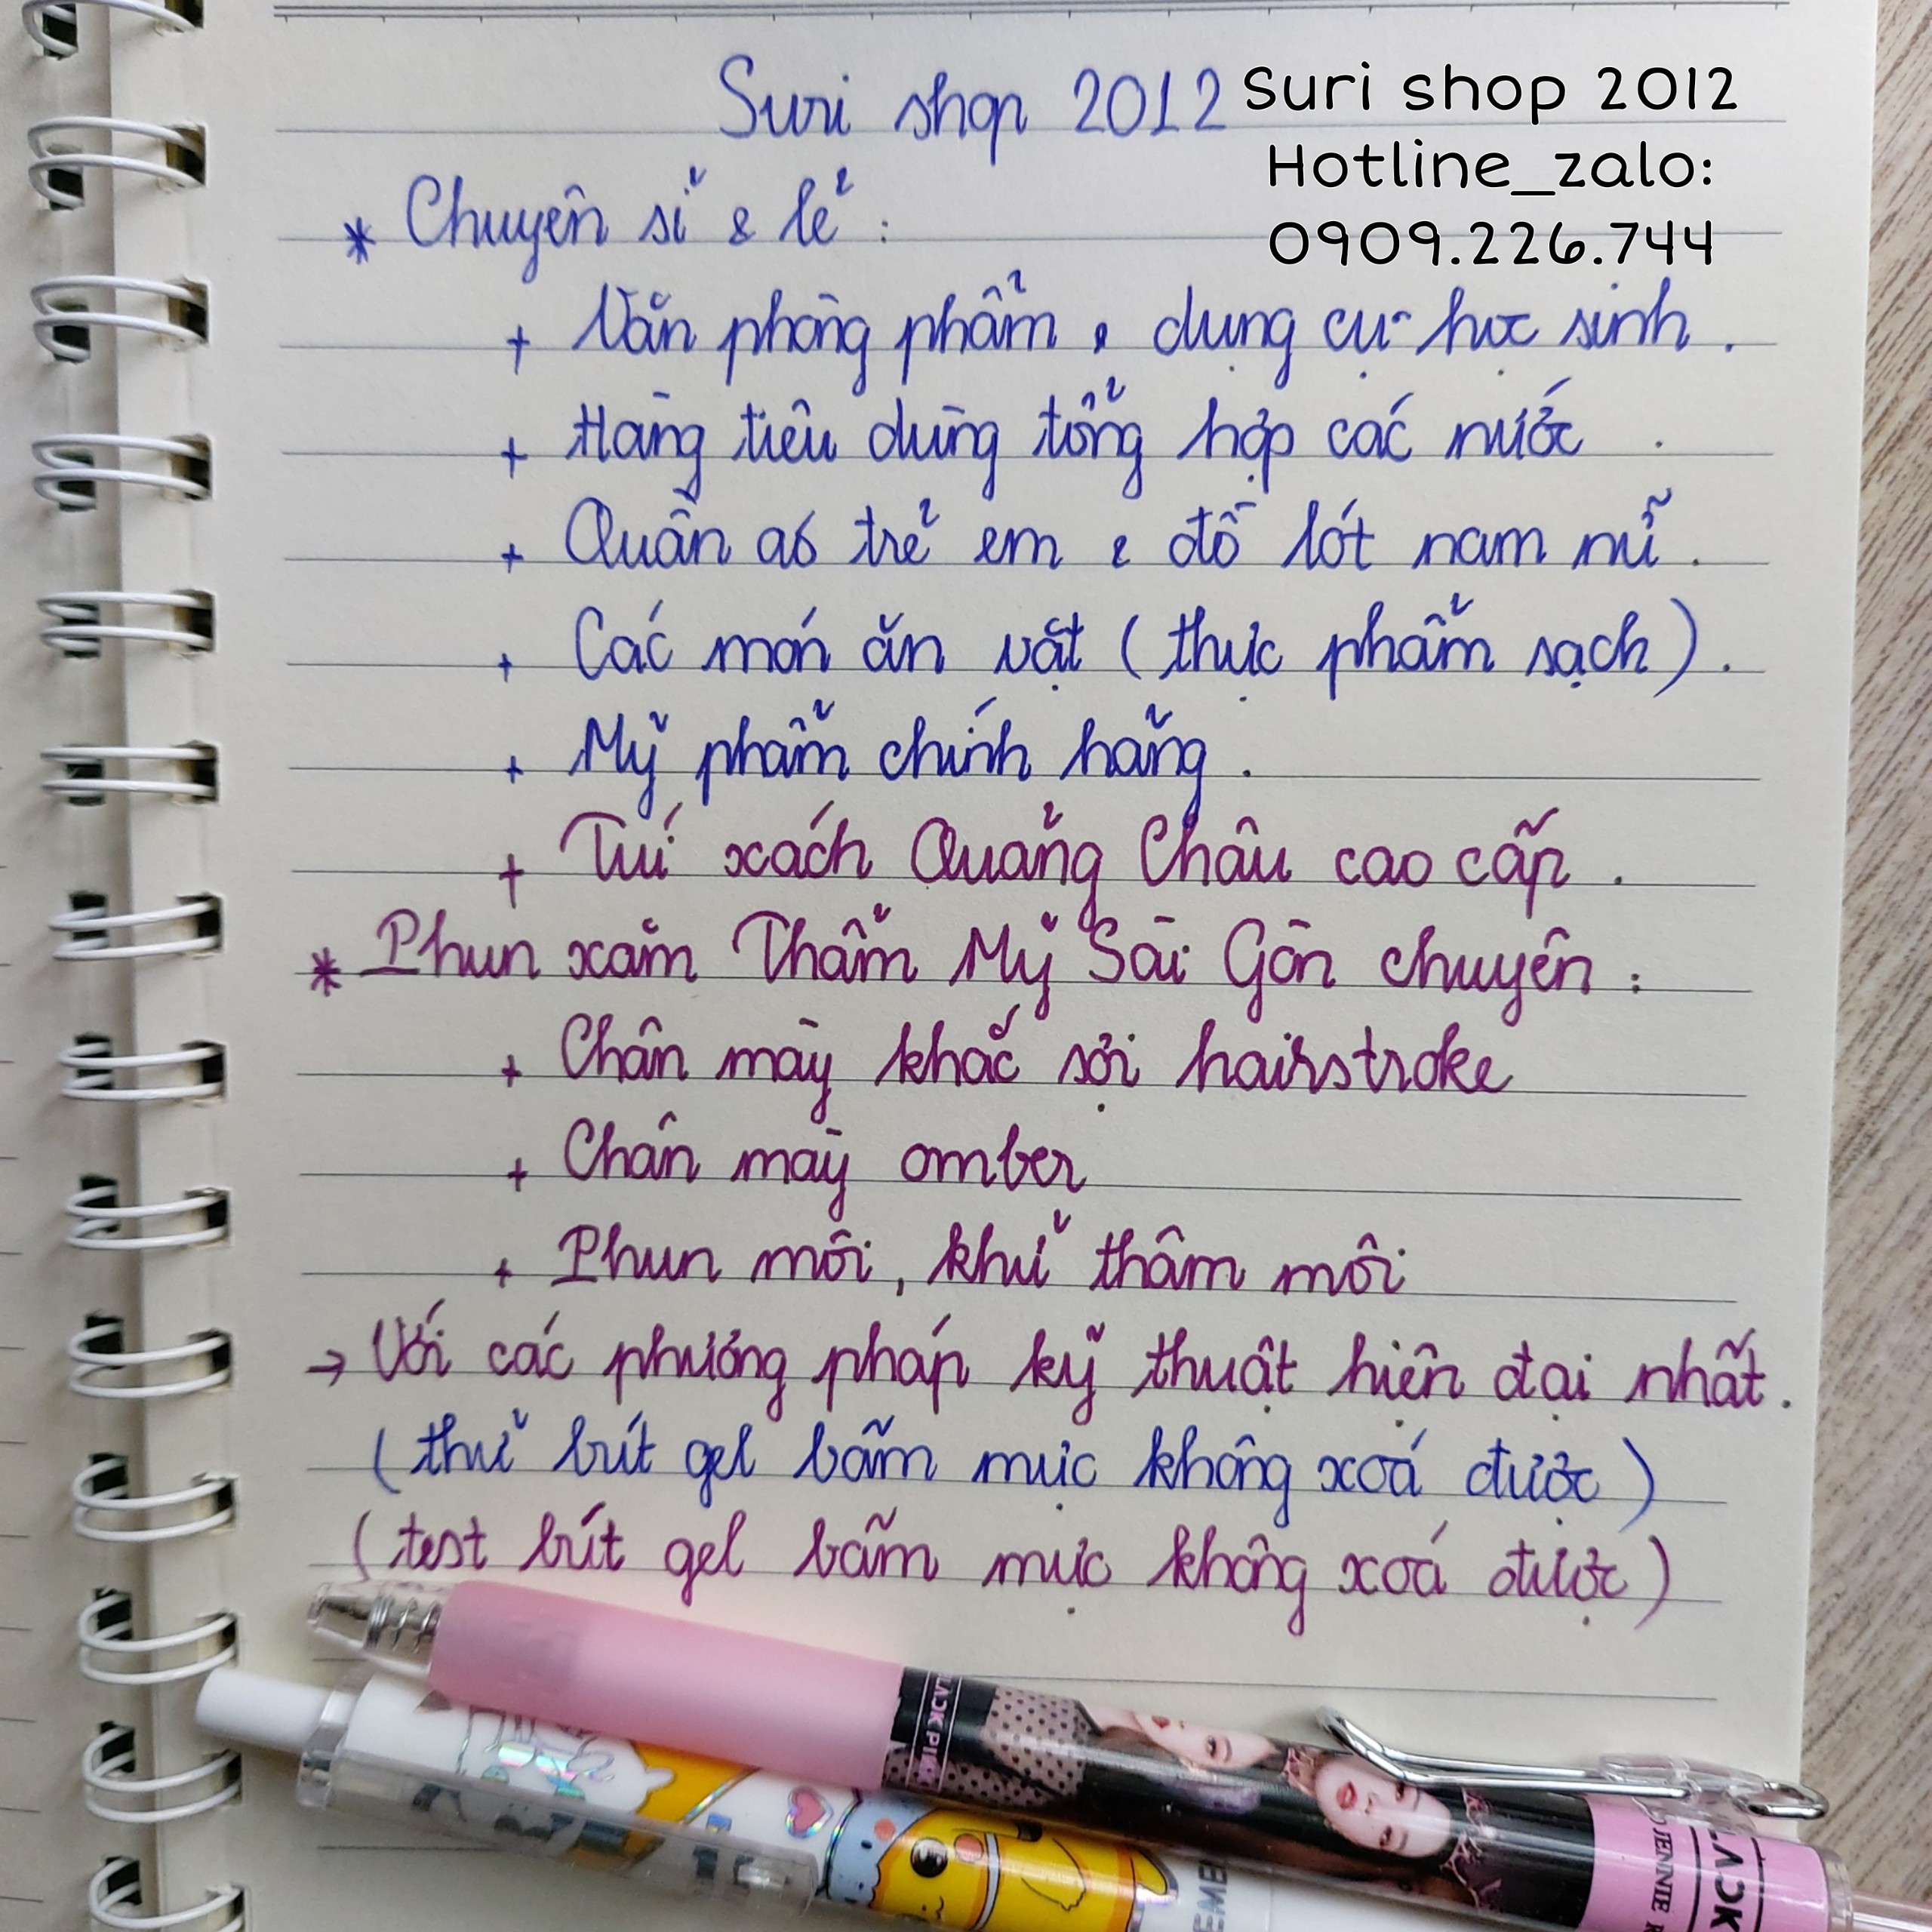 Suri shop 2012
Suri shop 2012
Hotline_zalo:
0909.226.744
* Chuyên sỉ & lẻ :
+ Văn phòng phẩm & dụng cụ học sinh.
+ Hàng tiêu dùng tổng hợp các nước.
+ Quần áo trẻ em & đồ lót nam nữ.
+ Các món ăn vặt (thực phẩm sạch).
+ Mỹ phẩm chính hãng.
+ Túi xách Quảng Châu cao cấp.
* Phun xăm Thẩm Mỹ Sài Gòn chuyên :
+ Chân mày khắc sợi hairstroke
+ Chân mày omber
+ Phun môi, khử thâm môi
→ Với các phương pháp kỹ thuật hiện đại nhất.
(thử bút gel bấm mực không xoá được)
(test bút gel bấm mực không xoá được)
JENNIE